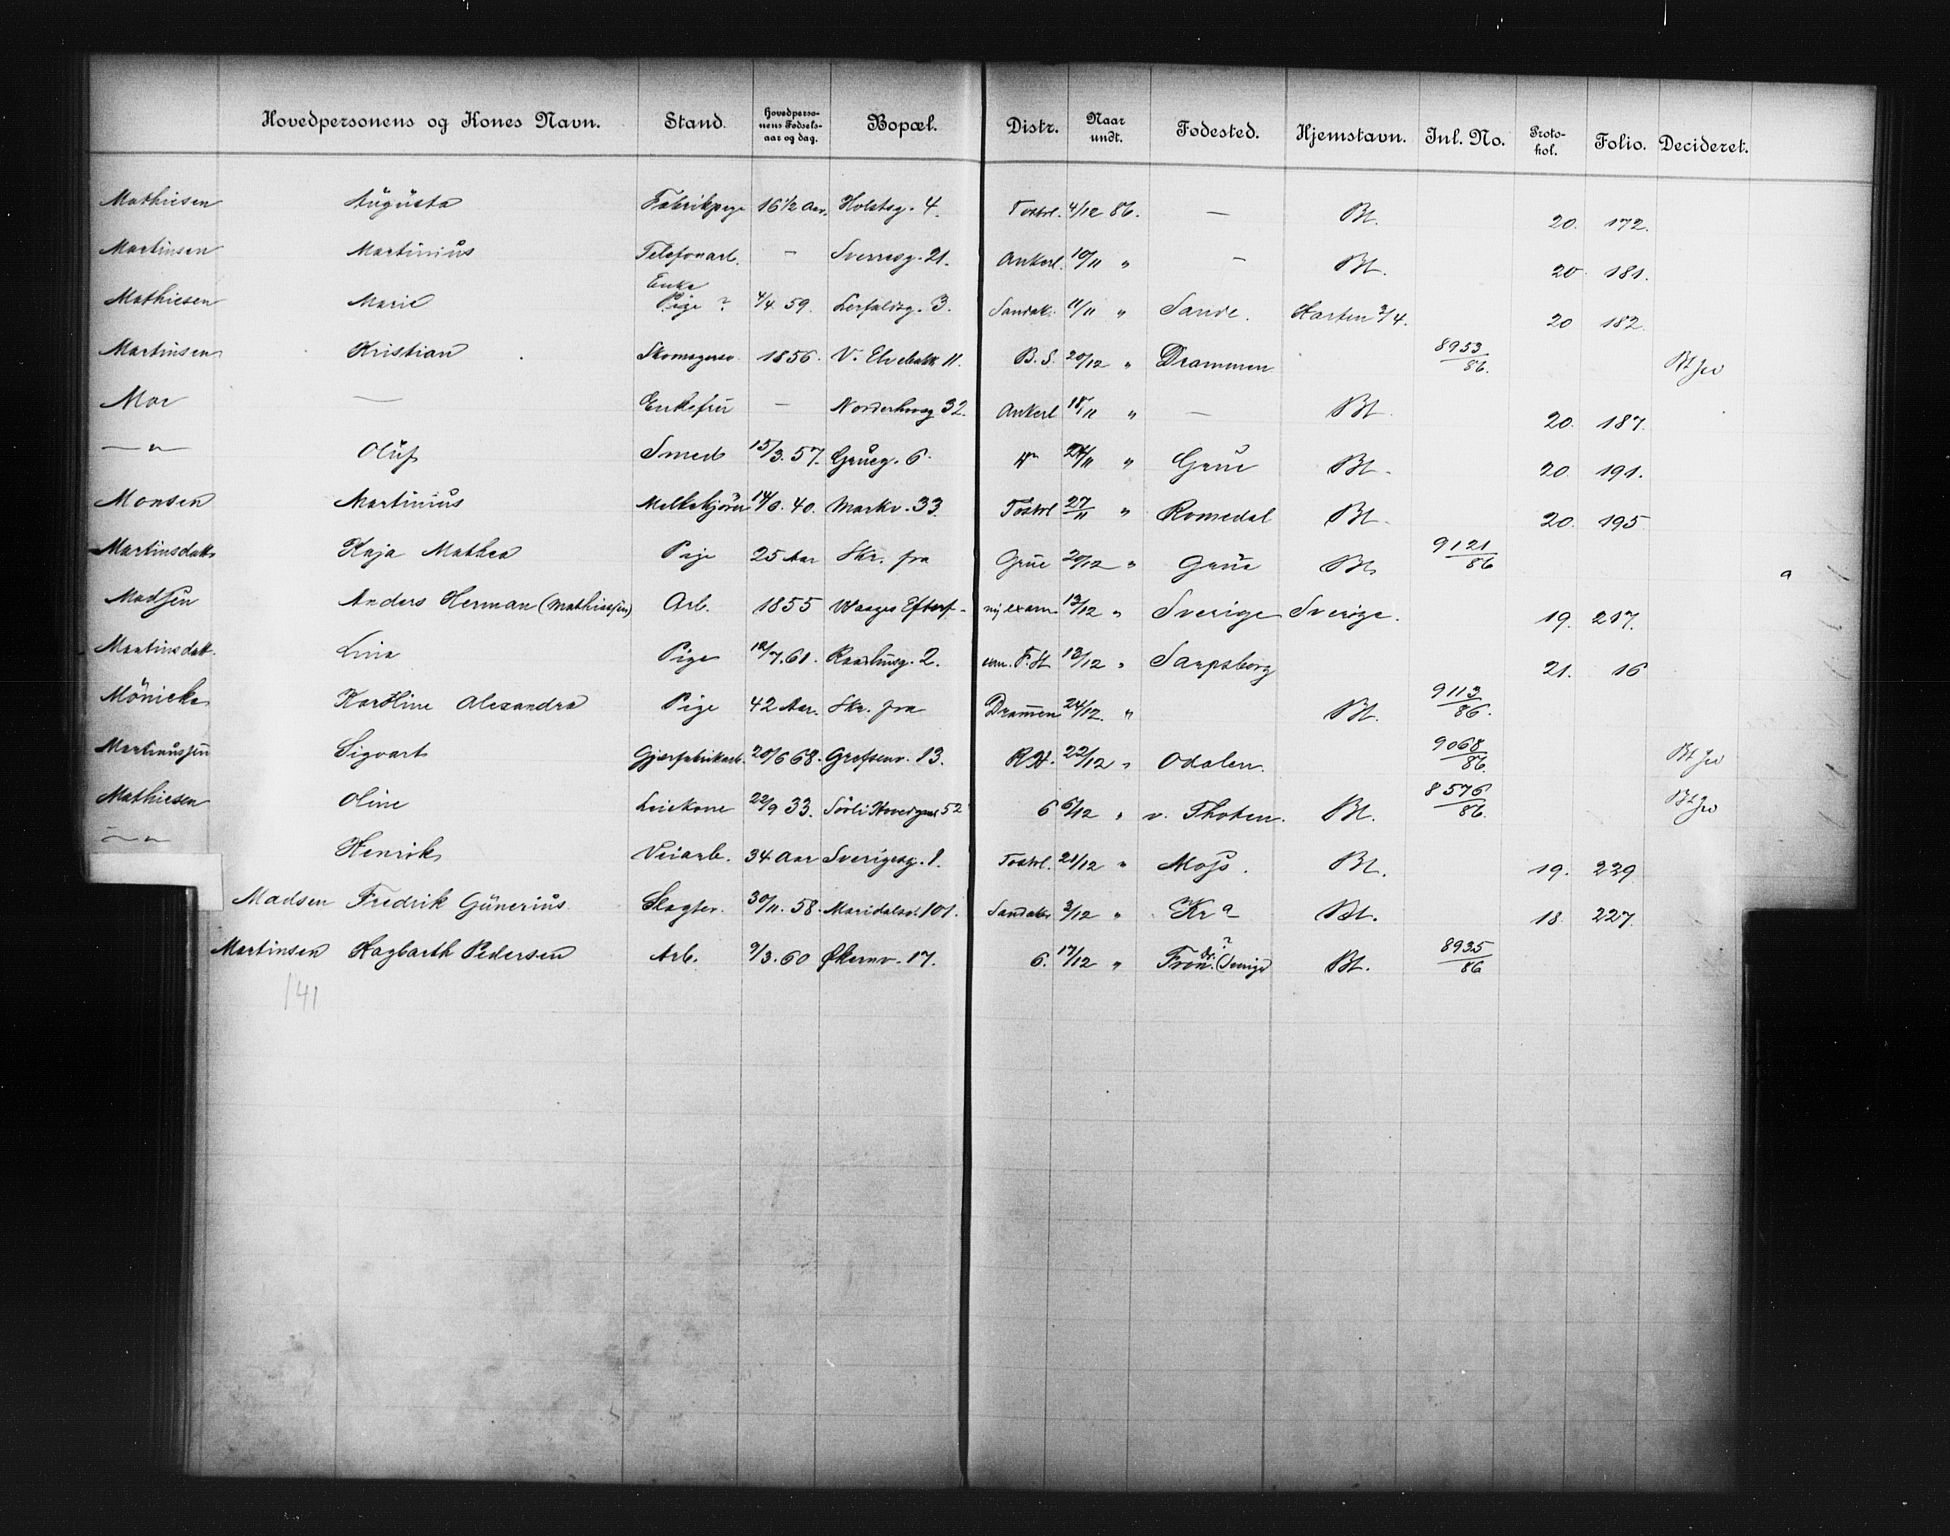 Hovedpersonens og Kones Navn. Stand. Hovedpersonens Fødselsaar og dag. Bopæl. Distr. Naar undt. Fødested. Hjemstavn. Inl. No. Protokol. Folio. Decideret.
Mathiesen Augusta Fabrikpige 16 1/2 Aar. Holstsg. 4. 4/12 86. — Bt. 20. 172.
Martinsen Martinius Telefonarb. — Sverresg. 21. Ankerl. 10/11 " — Bt. 20 181.
Mathiesen Marie Enke Pige ? 4/4 59. Lerfaldsg. 3. Sandak. 11/11 " Sande. 20 182.
Martinsen Kristian 1856. V. Elvebakk 11. B. S. 20/12 " Drammen 8953/86.
Moe — Enkefru — 32. Ankerl 18/11 " — Bt. 20. 187.
—"— Oluf Smed 15/3. 57. Grueg. 6. 24/11 " Grue Bt. 20. 191.
Monsen Martinius Melkekjører 14/8. 40. Markv. 33. 27/11 " Romedal Bt. 20. 195
Martinsdatt. Kaja Mathea Pige 25 Aar Skr. fra Grue 20/12 " Grue Bt. 9121/86
Madsen Anders Herman (Mathiesen) Arb. 1855 Waages Efterf. 13/12 " Sverige Sverige. 19. 217.
Martinsdatt. Lina Pige 12/7. 61. 2. F. H 13/12 " Sarpsborg 21. 16
Mönicke Karoline Alexandra Pige 42 Aar. Skr. fra Drammen 24/12. " Bt. 9113/86.
Martinussen Sigvart Gjærfabrikarb. 20/6 68. Grefsenv. 13. R.H. 22/12 " Odalen. 9068/86
Mathiesen Oline 22/9 33. 52 6 6/12 " v. Thoten. Bt. 8576/86.
—"— Henrik Veiarb. 34 Aar Sverigesg. 1. 21/12 " Moss. Bt. 19. 229
Madsen Fredrik Günerius Slagter. 30/11. 58. Maridalsv. 101. Sandaker 3/12 " Kr a Bt. 18. 227.
Martinsen Hagbarth Pedersen Arb. 9/3. 60 Økernv. 17. 6. 17/12 " Bt. 8935/86
141